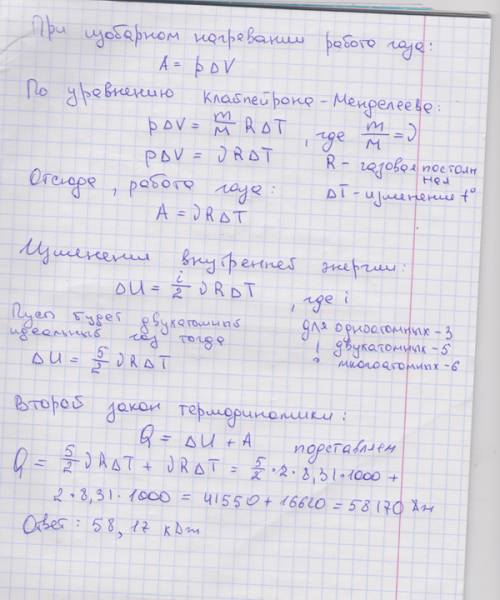 При изобарном нагревании работа газа:
A = pΔV
По уравнению Клапейрона-Менделеева:
pΔV = m/M RΔT, где m/M = ν
pΔV = νRΔT
R - газовая постоянная
Отсюда, работа газа:
ΔT - изменение t°
A = νRΔT
Изменении внутренней энергии:
ΔU = i/2 νRΔT, где i
для одноатомных - 3
двухатомных - 5
многоатомных - 6
Пусть будет двухатомный
идеальный газ тогда
ΔU = 5/2 νRΔT
Второй закон термодинамики:
Q = ΔU + A
подставляем
Q = 5/2 νRΔT + νRΔT = 5/2 · 2 · 8,31 · 1000 +
2 · 8,31 · 1000 = 41550 + 16620 = 58170 Дж
Ответ: 58,17 кДж